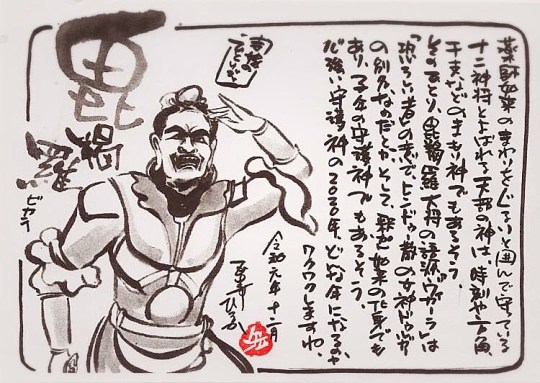 薬師如来のまわりをぐるりと囲んで守っている
十二神将とよばれる天部の神は、時刻や方角
干支などのまもり神でもあるそう。
そのひとり、毘羯羅大将の語源"ヴィカーラ"は
「恐ろしい者」の意で、ヒンドゥー教の女神ドゥルガー
の別名なのだとか。そして、釈迦如来の化身でも
あり、子年の守護神でもあるそう。
強い守護神の2020年、どんな年になるのか
ワクワクしますね。
令和元年十二月
毘羯羅
ビカラ